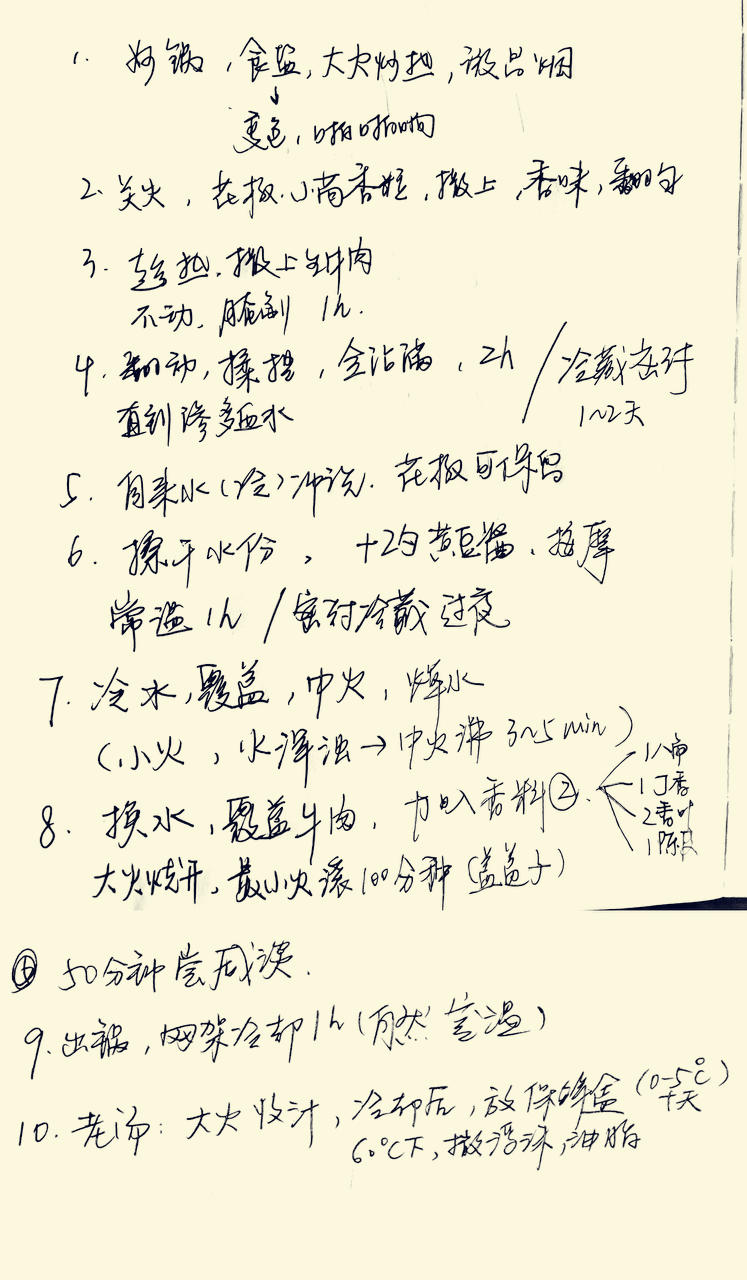 1. 炒锅,食盐,大火炒热,微冒烟
↓
变色,啪啪响
2. 关火,花椒.小茴香粒,撒上,香味,翻匀
3. 趁热.撒上牛肉
不动.腌制 1h.
4. 翻动,揉捏,全沾满.2h / 冷藏密封
直到渗多血水 1~2天
5. 自来水(冷)冲洗.花椒可保留
6. 擦干水份,+2勺黄豆酱.按摩
常温1h / 密封冷藏过夜
7. 冷水,覆盖,中火,焯水
(小火,水浑浊→中火沸 3~5min)
8. 换水,覆盖牛肉,加入香料②.
1八角
1丁香
2香叶
1陈皮
大火烧开,最小火滚100分种(盖盖子)
50分钟尝咸淡.
9. 出锅,网架冷却1h(自然 室温)
10. 老汤:大火收汁,冷却后,放保鲜盒(0-5℃)
十天
60℃下,撇浮沫,油脂